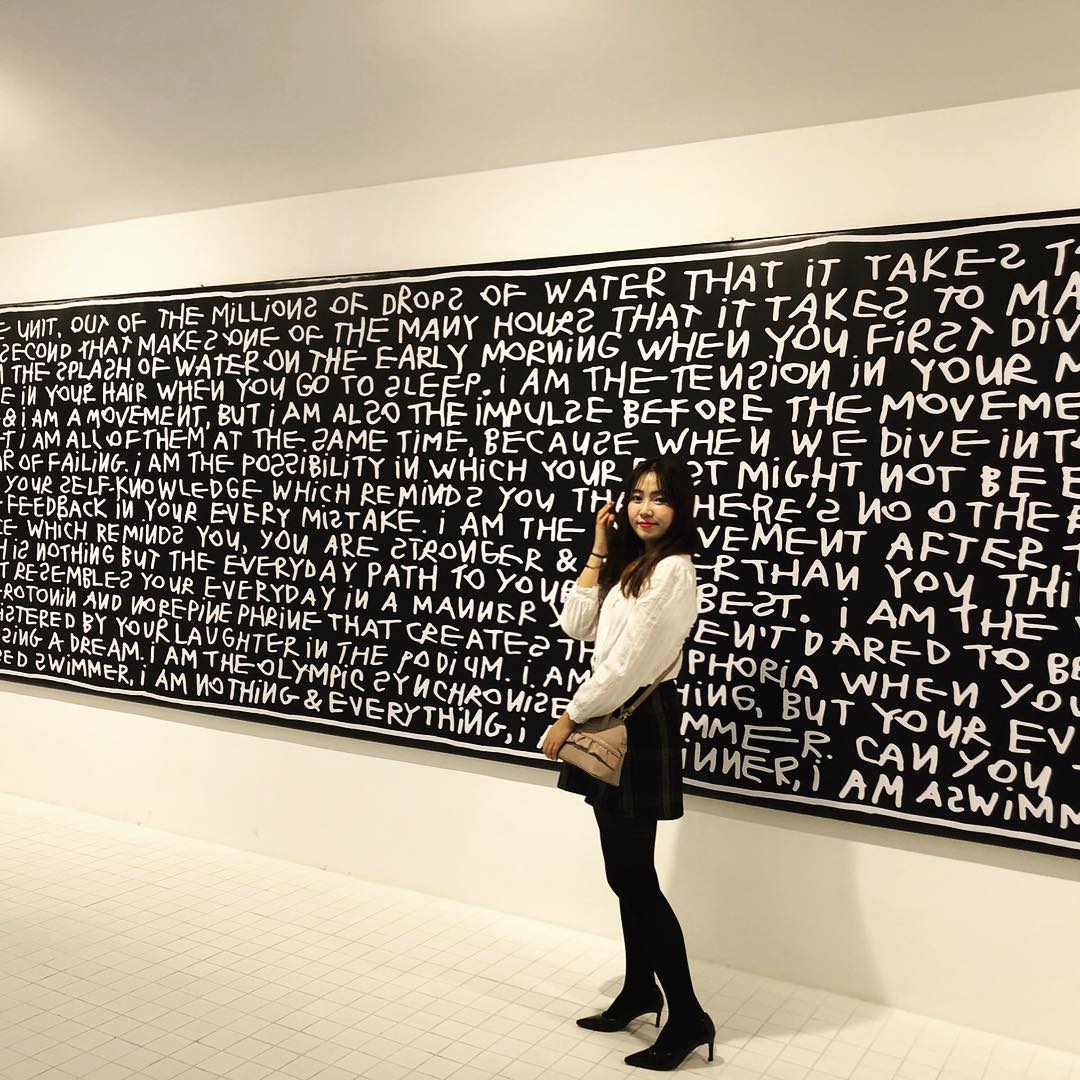 UNIT, OUT OF THE MILLIONS OF DROPS OF WATER THAT iT TAKES
SECOND THAT MAKES ONE OF THE MANY HOURS THAT iT TAKES TO
THE SPLASH OF WATER ON THE EARLY MORNiNG WHEN YOU FIRST
iN YOUR HAIR WHEN YOU GO TO SLEEP. i AM THE TENSiON iN YOUR
& i AM A MOVEMENT, BUT i AM ALSO THE iMPULSE BEFORE THE
i AM ALL OF THEM AT THE SAME TIME, BECAUSE WHEN WE DiVE
OF FAiLiNG. i AM THE POSSiBiLiTY iN WHiCH YOUR MiGHT NOT BE
YOUR SELF-KNOWLEDGE WHICH REMiNDS YOU THERE'S NO OTHER
FEEDBACK iN YOUR EVERY MiSTAKE. i AM THE AFTER
WHiCH REMiNDS YOU, YOU ARE STRONGER & THAN YOU
iS NOTHiNG BUT THE EVERYDAY PATH TO YOUR BEST. i AM THE
RESEMBLES YOUR EVERYDAY iN A MANNER DARED TO
AND NOREPiNEPHRiNE THAT CREATES WHEN YOU
BY YOUR LAUGHTER iN THE PODiUM. i AM BUT YOUR
A DREAM. i AM THE OLYMPiC SYNCHRONiSED CAN YOU
SWiMMER, i AM NOTHiNG & EVERYTHiNG, i i AM A SWiMM